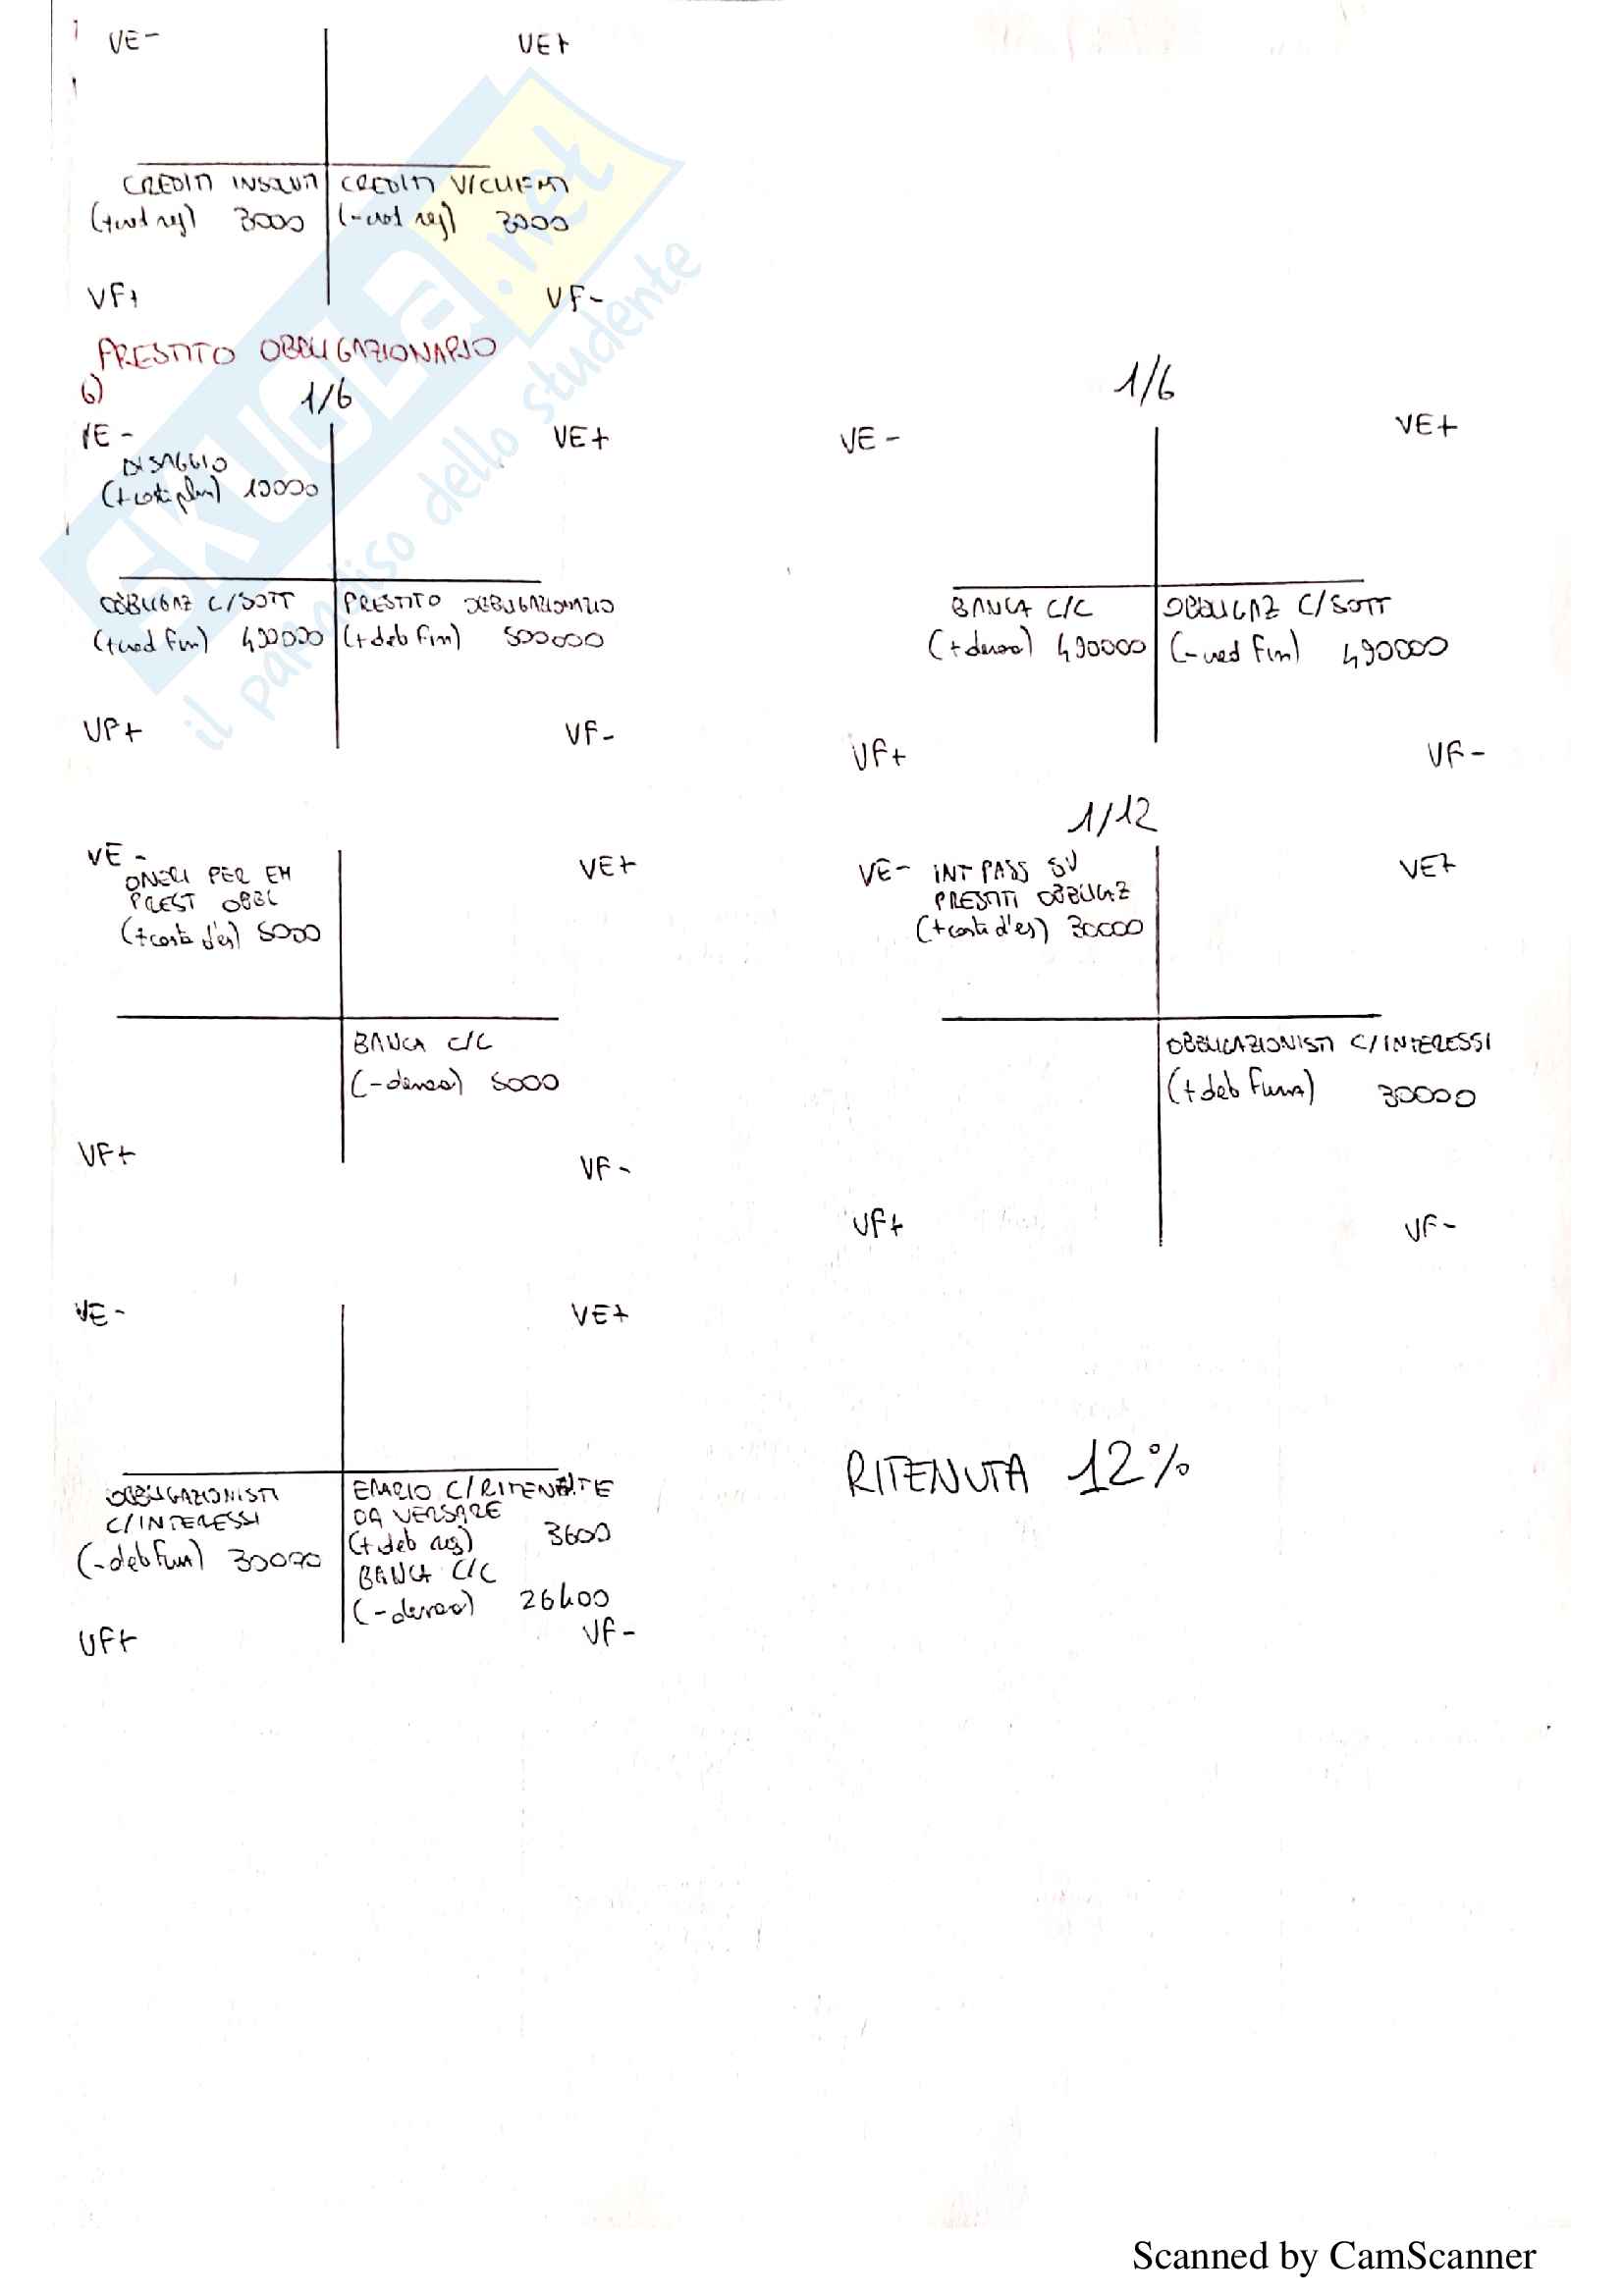 VE- VE+
CREDITI INSOLUTI CREDITI V/CLIENTI
(+cred reg) 3000 (-cred reg) 3000
VF+ VF-
PRESTITO OBBLIGAZIONARIO
6)
1/6
VE- VE+
DISAGGIO
(+costi plur) 10000
OBBLIGAZ C/SOTT PRESTITO OBBLIGAZIONARIO
(+cred fin) 490000 (+deb fin) 500000
VF+ VF-
1/6
VE- VE+
BANCA C/C OBBLIGAZ C/SOTT
(+denaro) 490000 (-cred fin) 490000
VF+ VF-
VE- VE+
ONERI PER EM
PREST OBBL
(+costi d'es) 5000
BANCA C/C
(-denaro) 5000
VF+ VF-
1/12
VE- INT PASS SU VE+
PRESTITI OBBLIGAZ
(+costi d'es) 30000
OBBLIGAZIONISTI C/INTERESSI
(+deb finan) 30000
VF+ VF-
VE- VE+
OBBLIGAZIONISTI
C/INTERESSI
(-deb fin) 30000
ERARIO C/RITENUTE
DA VERSARE
(+deb reg) 3600
BANCA C/C
(-denaro) 26400
VF+ VF-
RITENUTA 12%
SKUOLA.net
il paradiso dello studente
Scanned by CamScanner